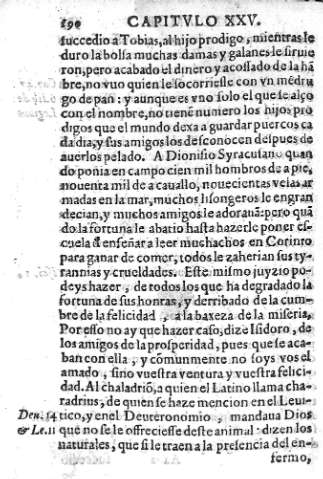 190 CAPITVLO XXV.
succedio a Tobias, al hijo prodigo, mientras le
duro la bolsa muchas damas y galanes le siruie
ron, pero acabado el dinero y acossado de la hã
bre, no vuo quien le socorriesse con vn medru
go de pan: y aunque es vno solo el que se alço
con el nombre, no tiene numero los hijos pro
digos que el mundo dexa a guardar puercos ca
da dia, y sus amigos los desconocen despues de
auerlos pelado. A Dionisio Syracusano quan
do ponia en campo cien mil hombres de a pie,
nouenta mil de a cauallo, nouecientas velas ar
madas en la mar, muchos lisongeros le engran
decian, y muchos amigos le adorauã: pero quã
do la fortuna le abatio hasta hazerle poner es-
cuela à enseñar a leer muchachos en Corinto
para ganar de comer, todos le zaherian sus ty-
rannias y crueldades. Este mismo juyzio po-
deys hazer, de todos los que ha degradado la
fortuna de sus honras, y derribado de la cum-
bre de la felicidad, a la baxeza de la miseria.
Por esso no ay que hazer caso, dize Isidoro, de
los amigos de la prosperidad, pues que se aca-
ban con ella, y cõmunmente no soys vos el
amado, sino vuestra ventura y vuestra felici-
dad. Al chaladriõ, a quien el Latino llama cha-
radrius, de quien se haze mencion en el Leui-
Deu. 14 tico, y en el Deuteronomio, mandaua Dios
& Le. 11 que no se le offreciesse deste animal: dizen los
naturales, que si le traen a la presencia del en-
fermo,